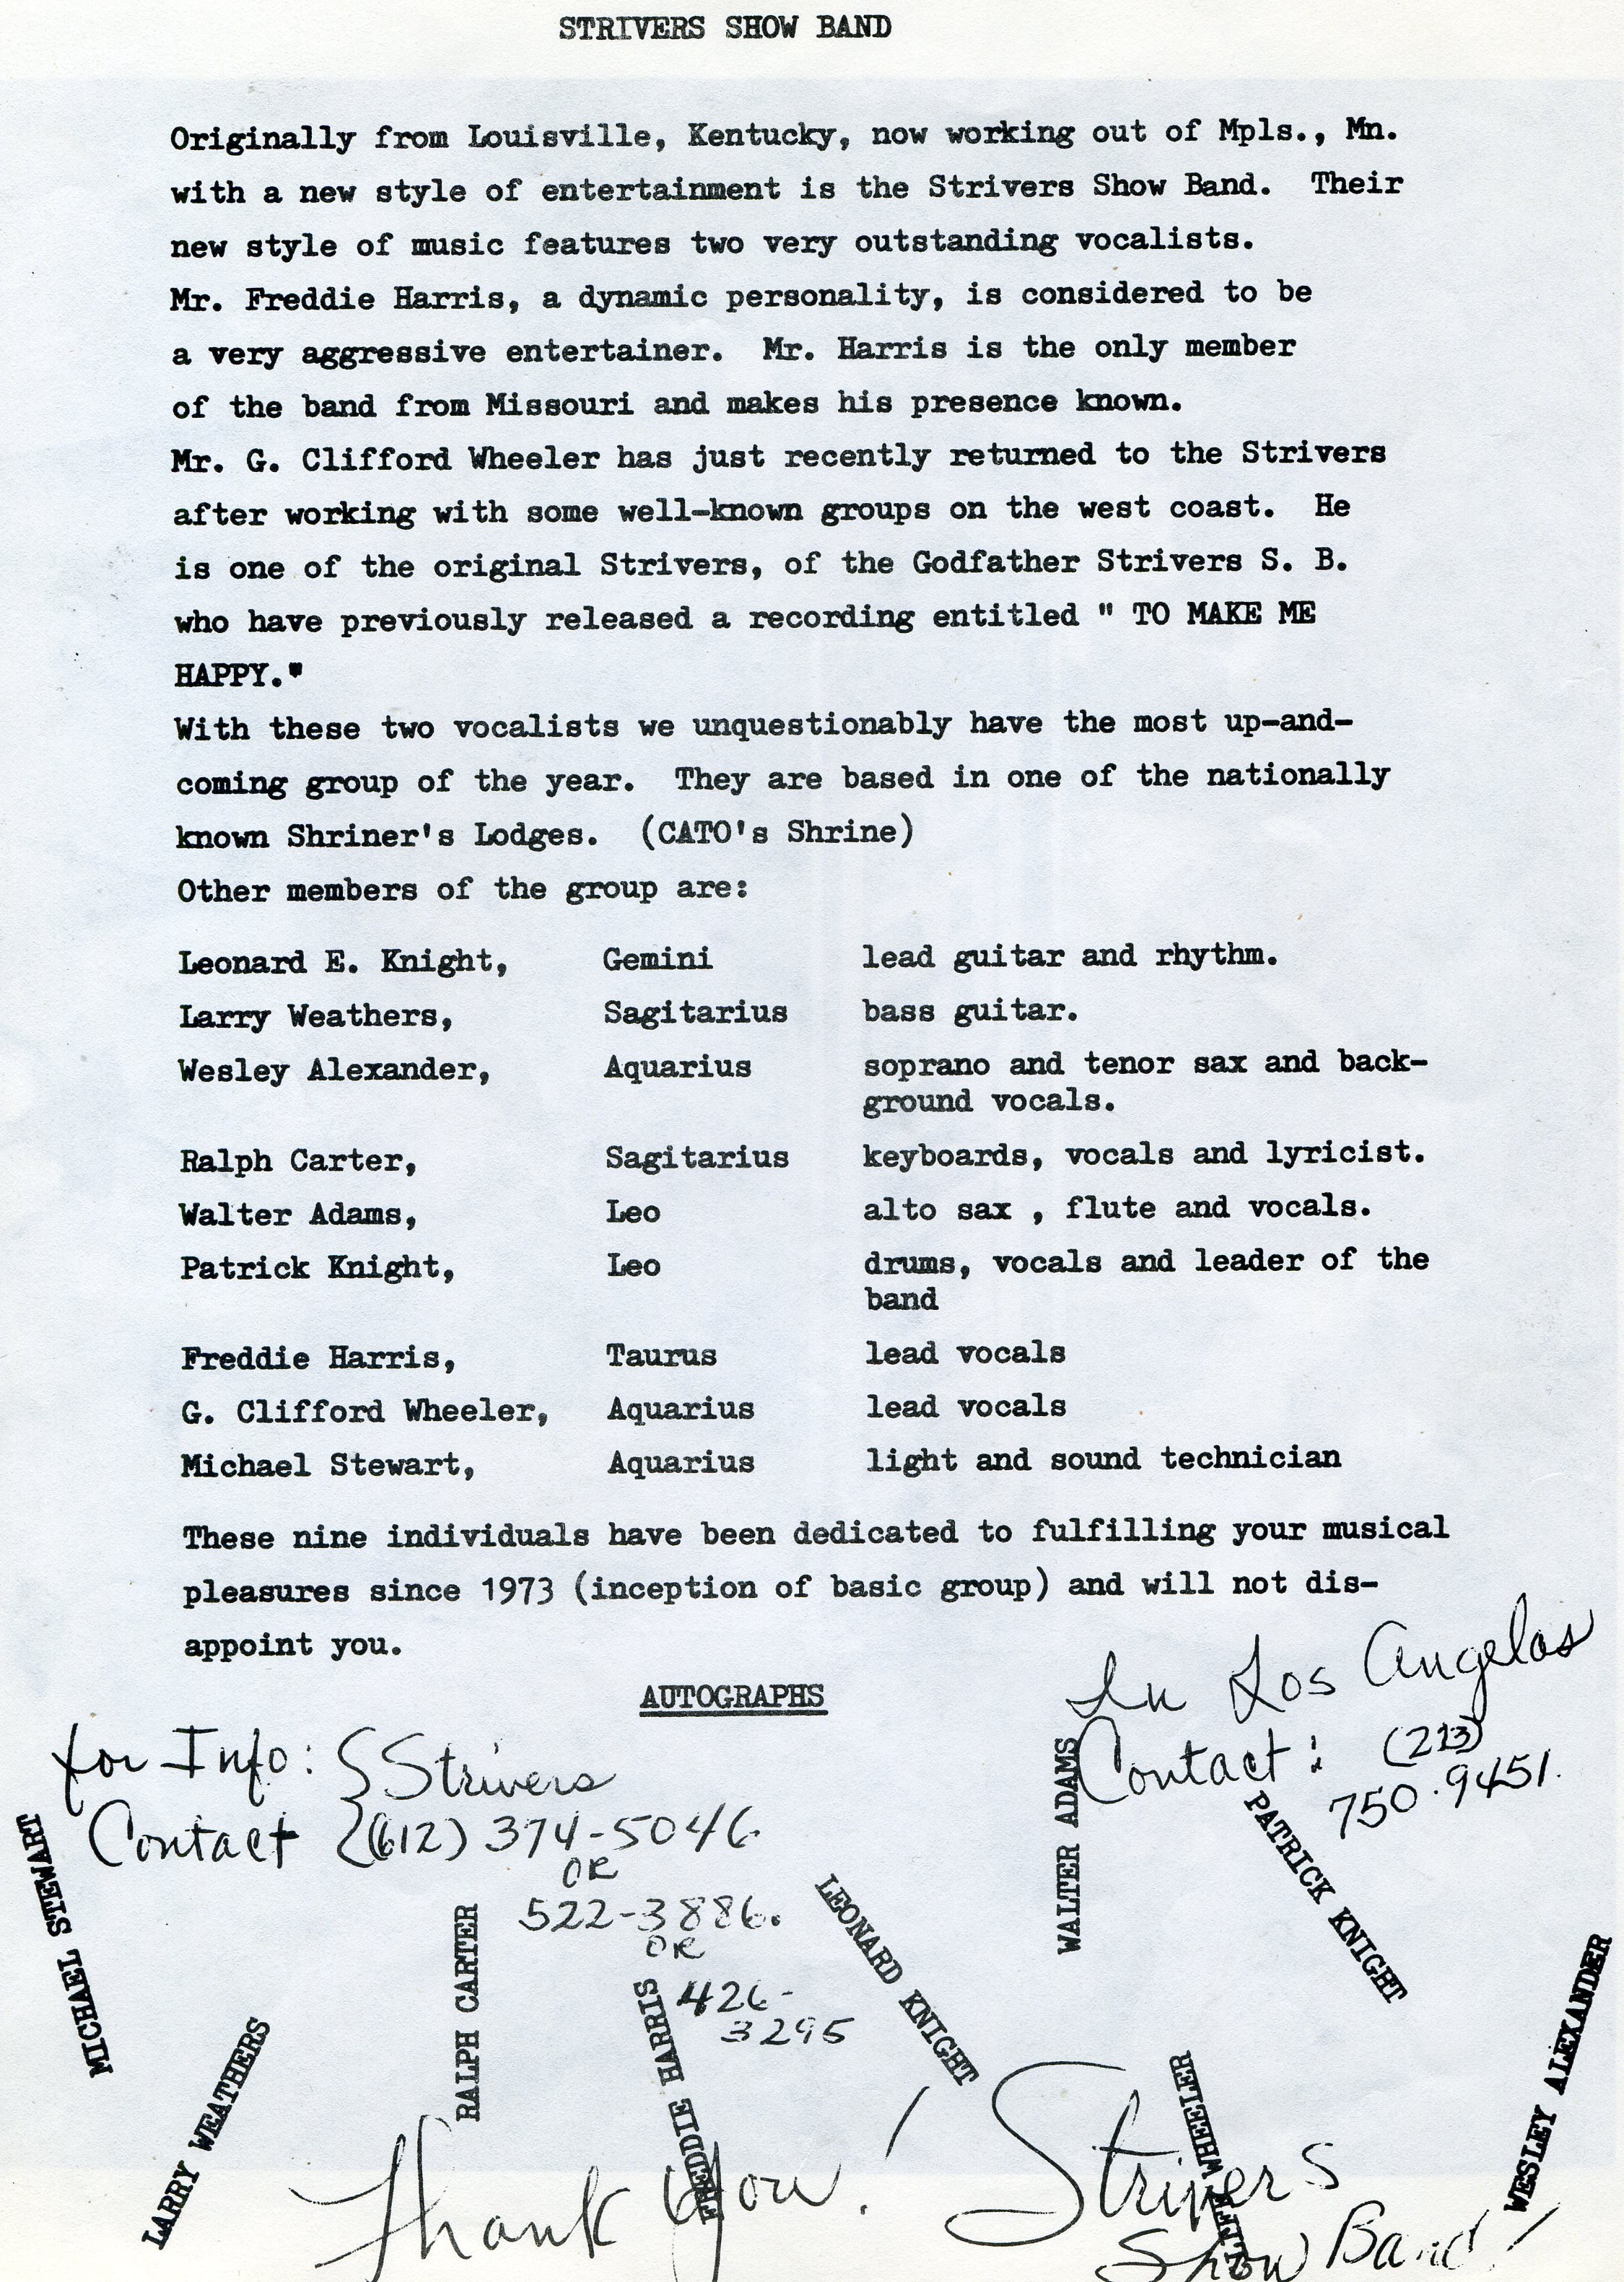 STRIVERS SHOW BAND
Originally from Louisville, Kentucky, now working out of Mpls., Mn.
with a new style of entertainment is the Strivers Show Band. Their
new style of music features two very outstanding vocalists.
Mr. Freddie Harris, a dynamic personality, is considered to be
a very aggressive entertainer. Mr. Harris is the only member
of the band from Missouri and makes his presence known.
Mr. G. Clifford Wheeler has just recently returned to the Strivers
after working with some well-known groups on the west coast. He
is one of the original Strivers, of the Godfather Strivers S. B.
who have previously released a recording entitled " TO MAKE ME
HAPPY."
With these two vocalists we unquestionably have the most up-and-
coming group of the year. They are based in one of the nationally
known Shriner's Lodges. (CATO's Shrine)
Other members of the group are:
Leonard E. Knight, Gemini lead guitar and rhythm.
Larry Weathers, Sagitarius bass guitar.
Wesley Alexander, Aquarius soprano and tenor sax and back-
ground vocals.
Ralph Carter, Sagitarius keyboards, vocals and lyricist.
Walter Adams, Leo alto sax , flute and vocals.
Patrick Knight, Leo drums, vocals and leader of the
band
Freddie Harris, Taurus lead vocals
G. Clifford Wheeler, Aquarius lead vocals
Michael Stewart, Aquarius light and sound technician
These nine individuals have been dedicated to fulfilling your musical
pleasures since 1973 (inception of basic group) and will not dis-
appoint you.
AUTOGRAPHS
In Los Angelos
Contact: (213)
750.9451.
for Info: { Strivers
Contact { (612) 374-5046
OR
522-3886.
OR
426-
3295
MICHAEL STEWART
LARRY WEATHERS
RALPH CARTER
FREDDIE HARRIS
LEONARD KNIGHT
WALTER ADAMS
PATRICK KNIGHT
WHEELER
WESLEY ALEXANDER
Thank You! Strivers
Show Band!